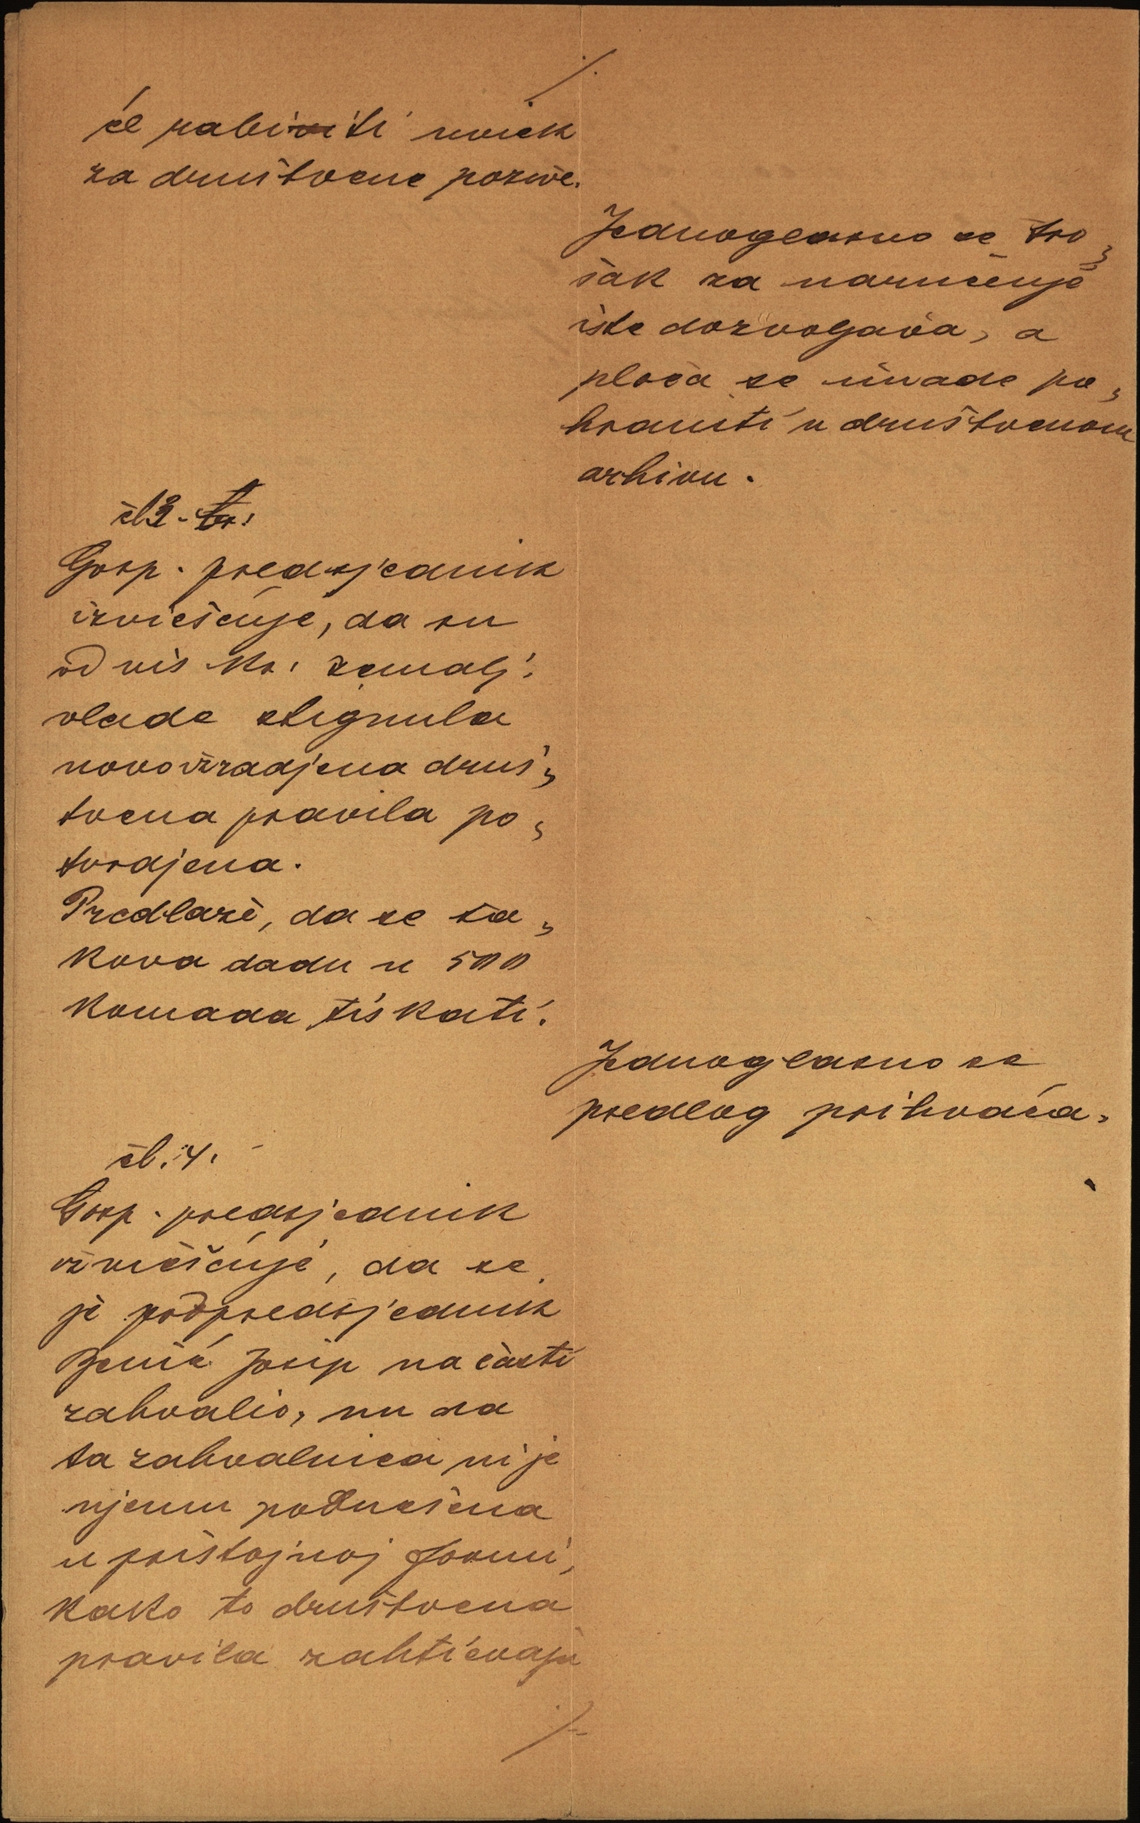 ./.
će rabiti uviek
za društvene pozive.
Jednoglasno se tro„
šak za naručenje
iste dozvoljava, a
ploča se imade po„
hraniti u društvenom
arhivu.
čl. 3.
Gosp. predsjednik
izviešćuje, da su
od vis. kr. zemalj.
vlade stignula
novoizradjena druš„
tvena pravila po„
tvrdjena.
Predlaže, da se ta„
kova dadu u 500
komada tiskati.
Jednoglasno se
predlog prihvaća.
čl. 4.
Gosp. predsjednik
izviešćuje, da se
je podpredsjednik
Josip na časti
zahvalio, nu da
ta zahvalnica nije
njemu podnešena
u pristojnoj formi,
kako to društvena
pravila zahtievaju
./.